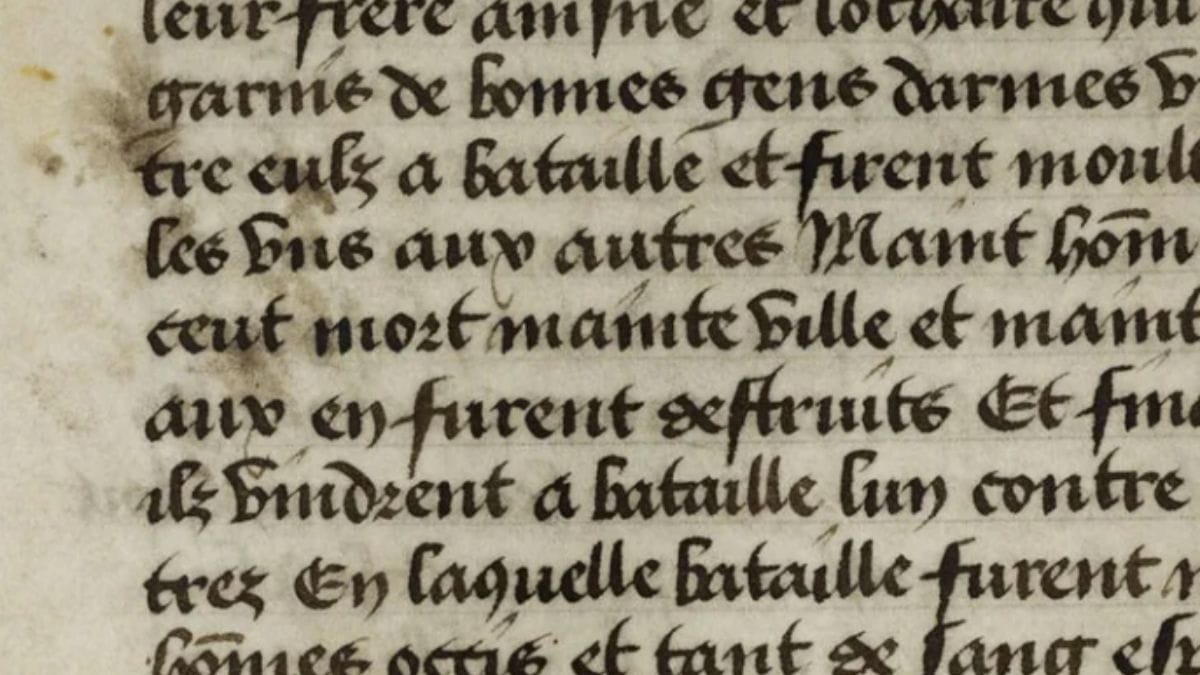 leur frere aisne et lothaire qui
garnis de bonnes gens darmes v
tre eulz a bataille et furent moul
les vns aux autres Maint hom̄
ceut mort mainte ville et maint
aux en furent destruits Et fin
ilz vindrent a bataille lun contre
trez En laquelle bataille furent
hom̄es occis et tant de sang esp